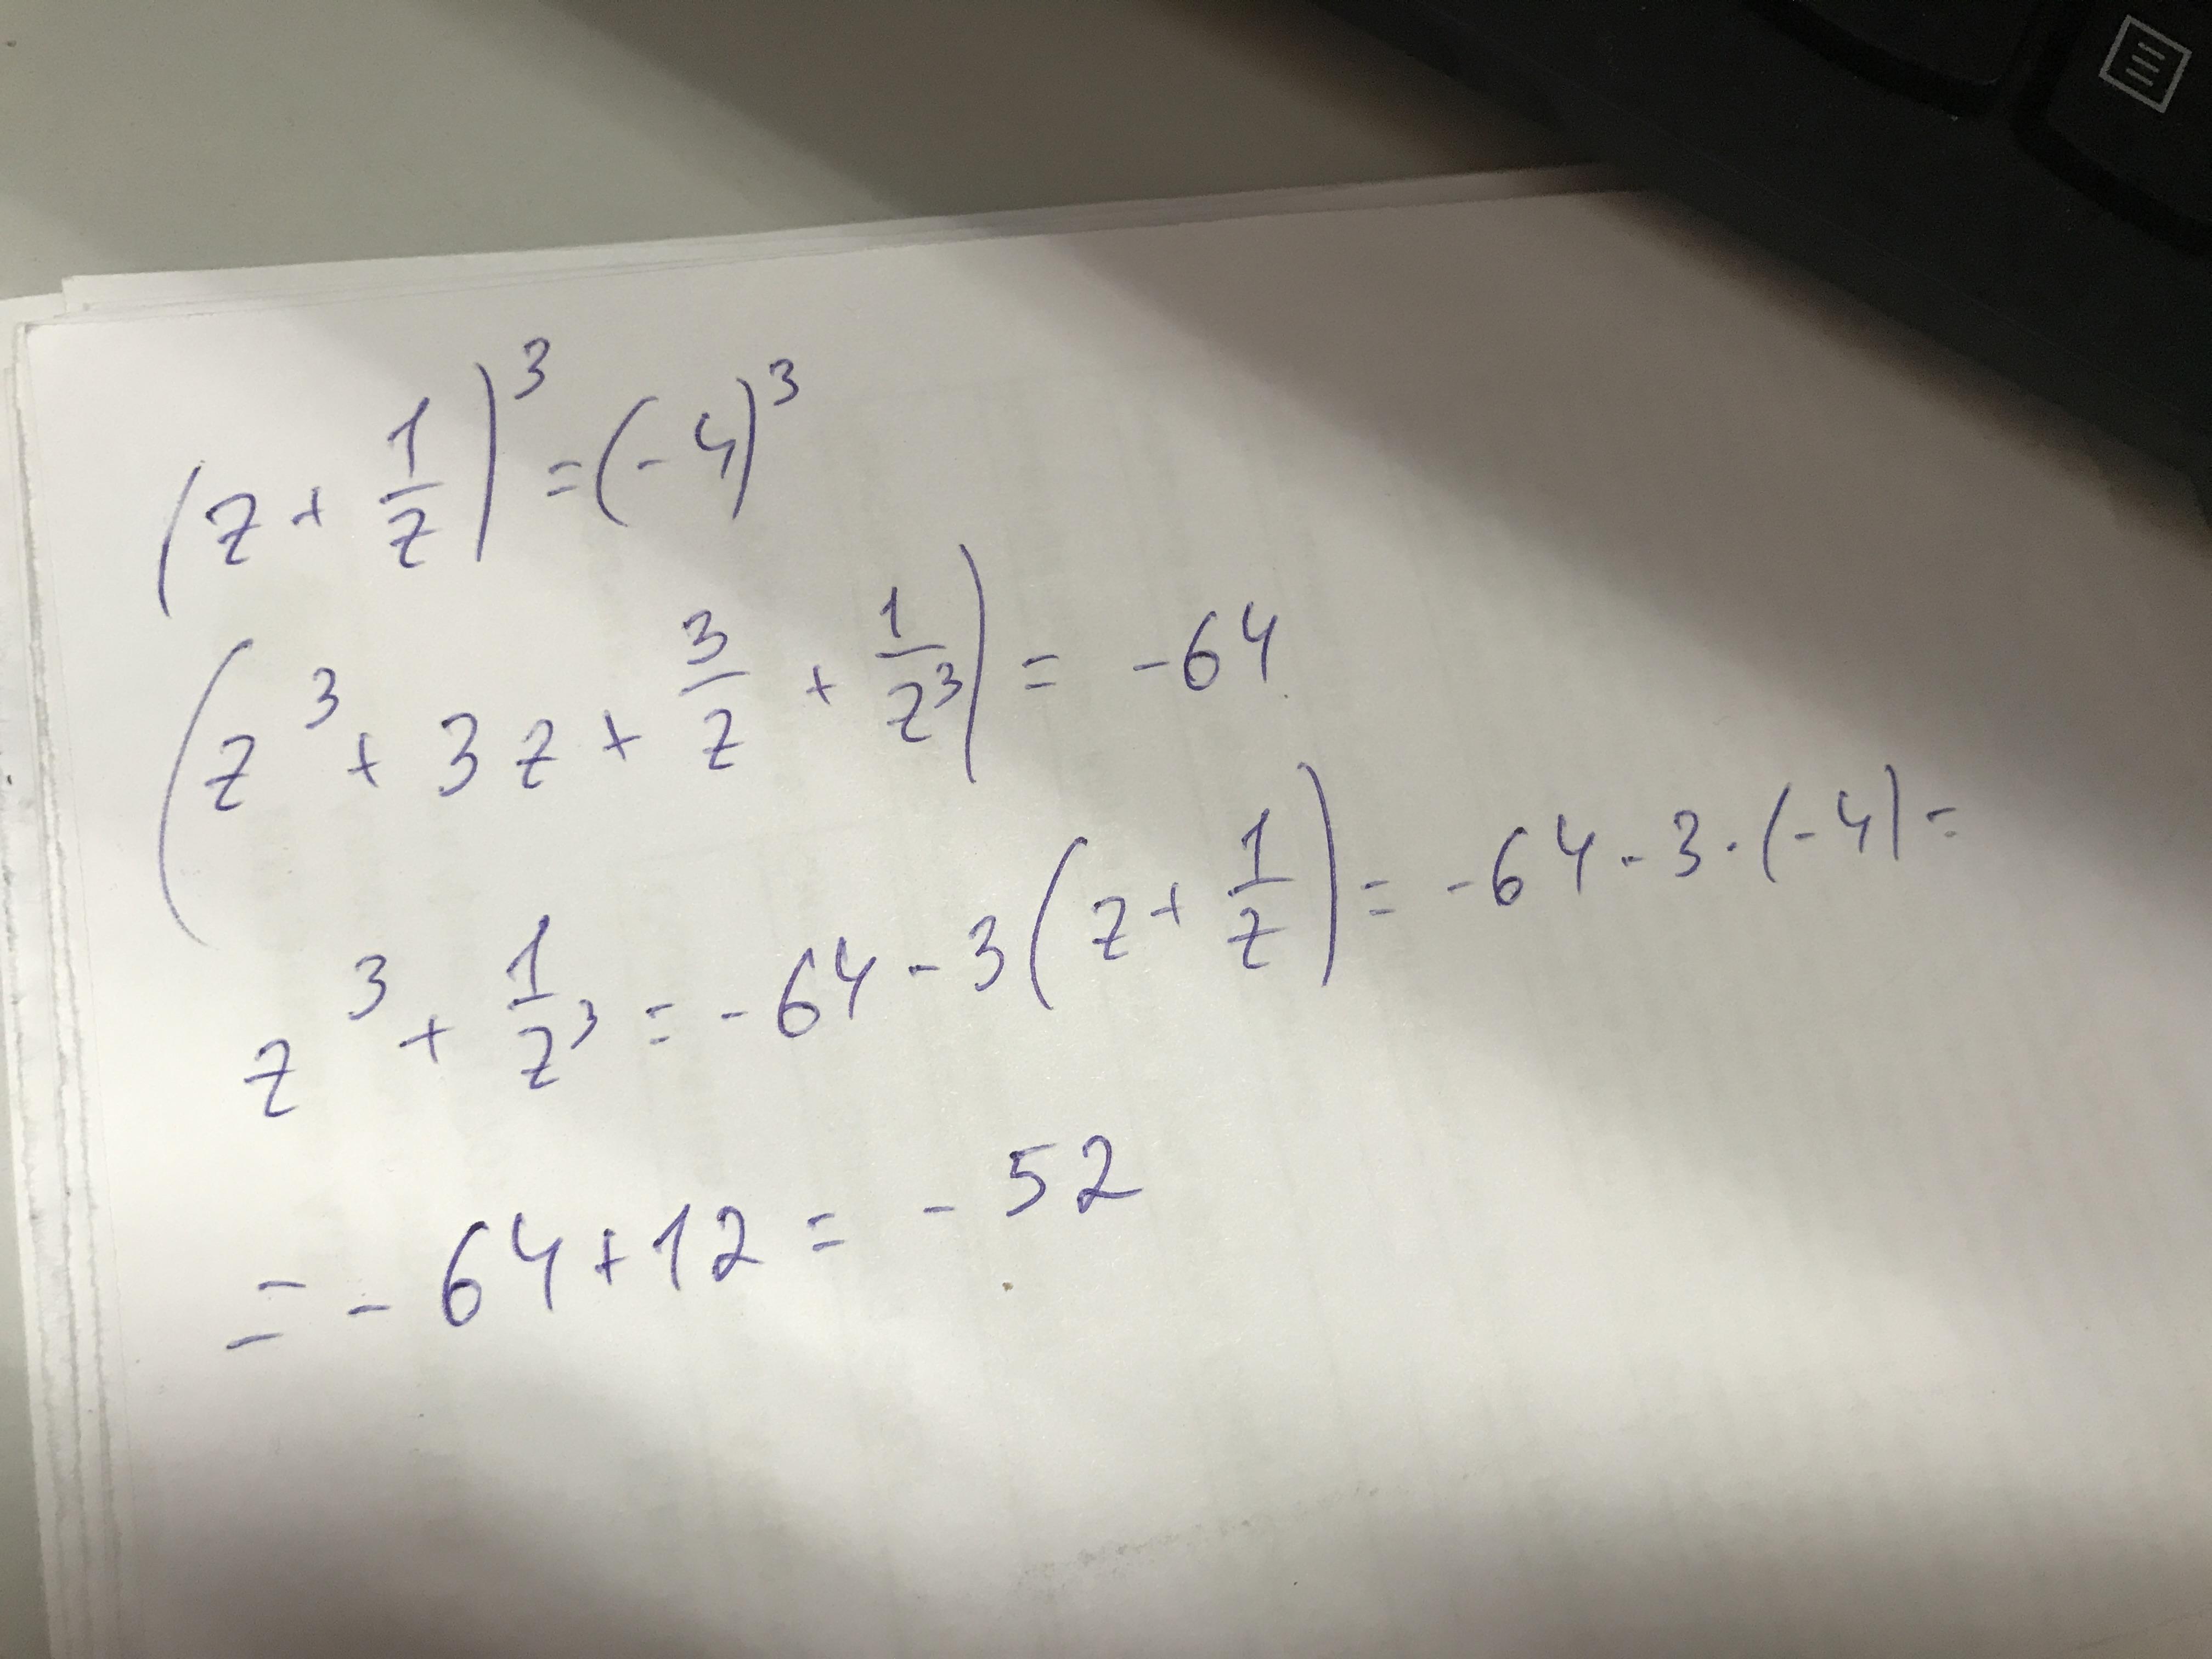 (z + 1/z)³ = (-4)³
(z³ + 3z + 3/z + 1/z³) = -64
z³ + 1/z³ = -64 - 3(z + 1/z) = -64 - 3·(-4) =
= -64 + 12 = -52